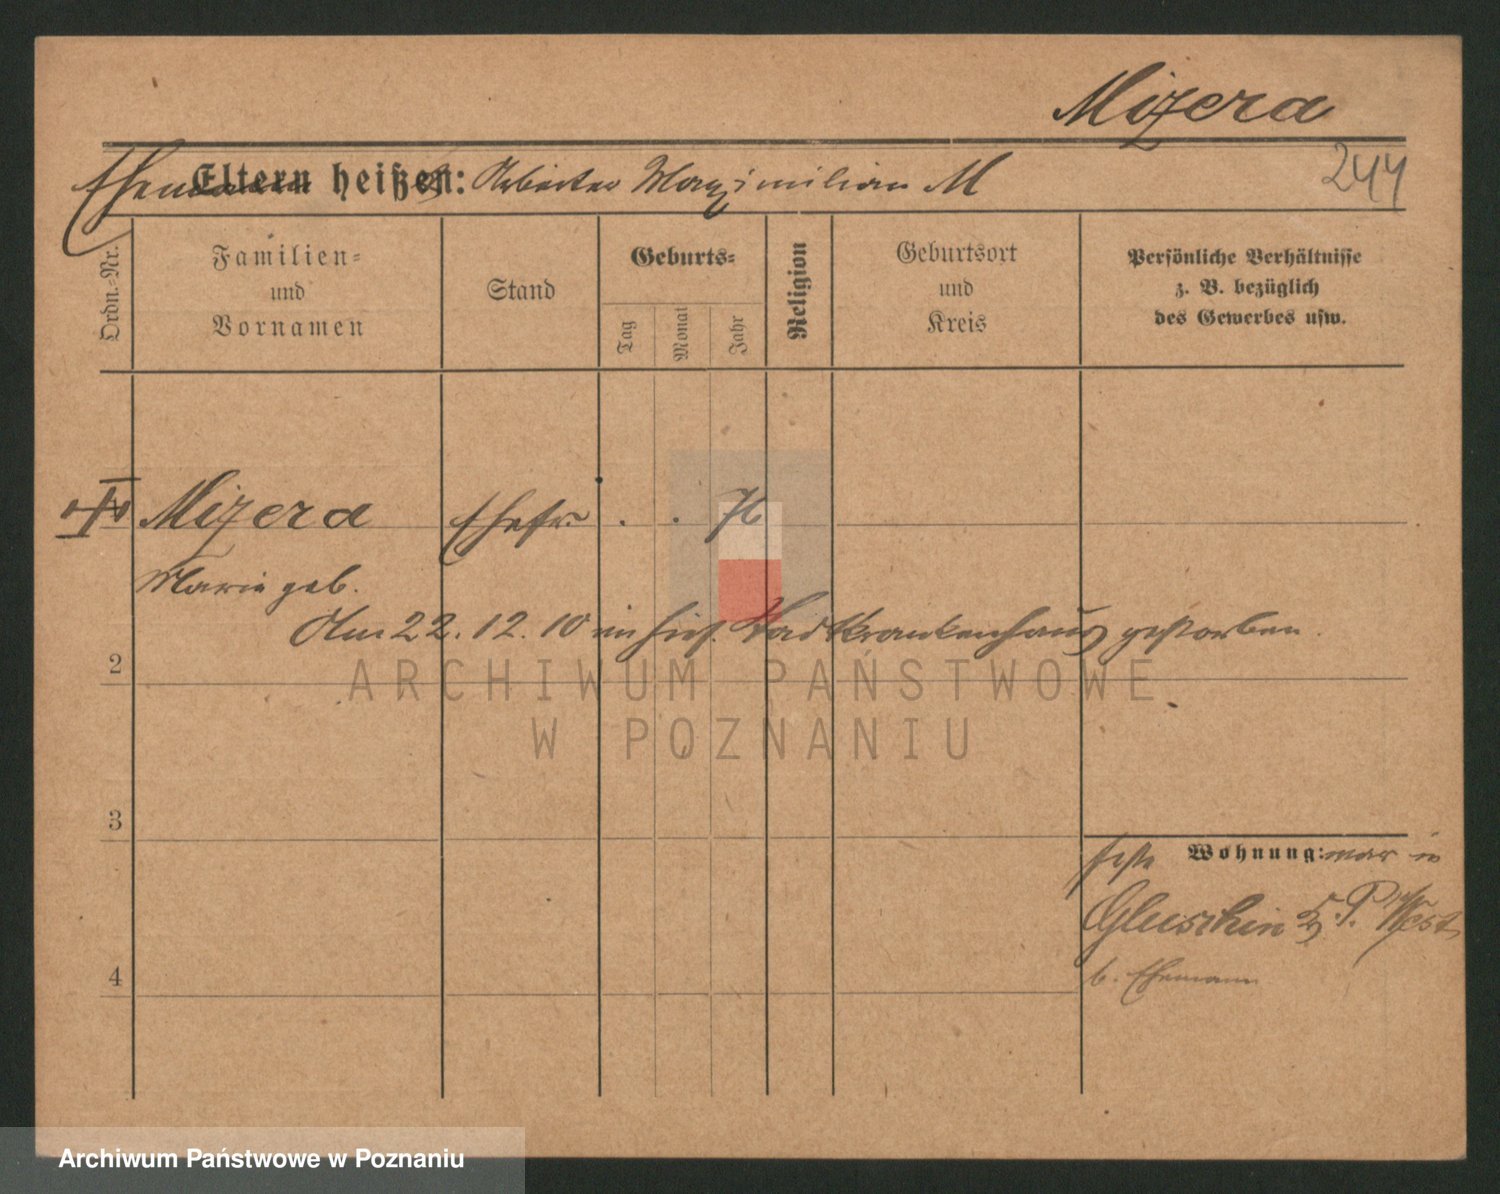 Mizera
244
Ehemann Eltern heißen: Arbeiter Maximilian M
Ordn.-Nr.
Familien-
und
Vornamen
Stand
Geburts-
Tag
Monat
Jahr
Religion
Geburtsort
und
Kreis
Persönliche Verhältnisse
z. B. bezüglich
des Gewerbes usw.
Mizera Ehefr. . . 76
Marie geb.
Am 22.12.10 im hies. Stadtkrankenhaus gestorben.
2
ARCHIWUM PAŃSTWOWE
W POZNANIU
3
Wohnung: war in
Gluschin Kr. P. West
b. Ehemann
4
Archiwum Państwowe w Poznaniu